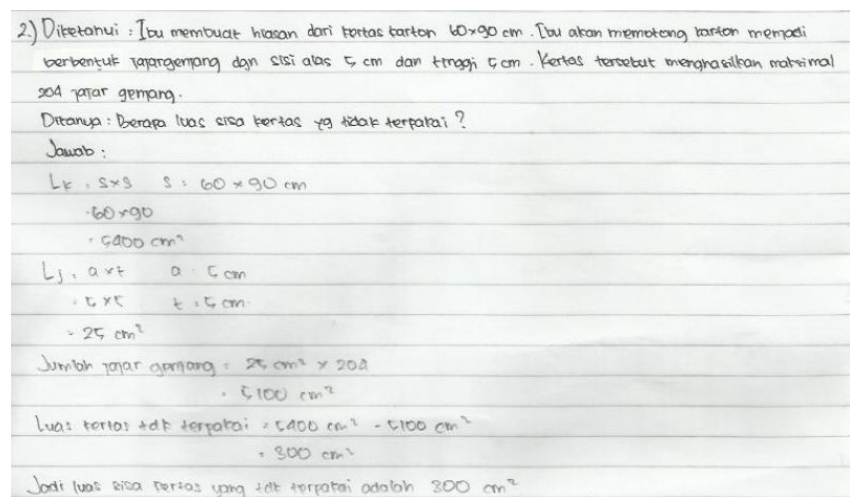 2.) Diketahui : Ibu membuat hiasan dari kertas karton 60×90 cm. Ibu akan memotong karton menjadi
berbentuk jajargenjang dgn sisi alas 5 cm dan tinggi 5 cm. Kertas tersebut menghasilkan maksimal
204 jajar genjang.
Ditanya : Berapa luas sisa kertas yg tidak terpakai ?
Jawab :
Lk = s×s s = 60 × 90 cm
= 60×90
= 5400 cm²
Lj = a×t a = 5 cm
= 5×5 t = 5 cm
= 25 cm²
Jumlah jajar genjang = 25 cm² × 204
= 5100 cm²
Luas kertas tdk terpakai = 5400 cm² - 5100 cm²
= 300 cm²
Jadi luas sisa kertas yang tdk terpakai adalah 300 cm²